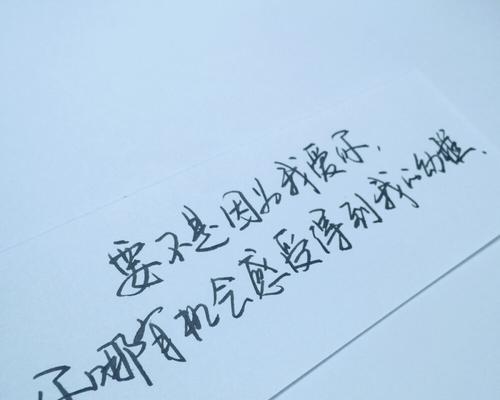 要不是因为我爱你，
你哪有机会感受得到我的幼稚.